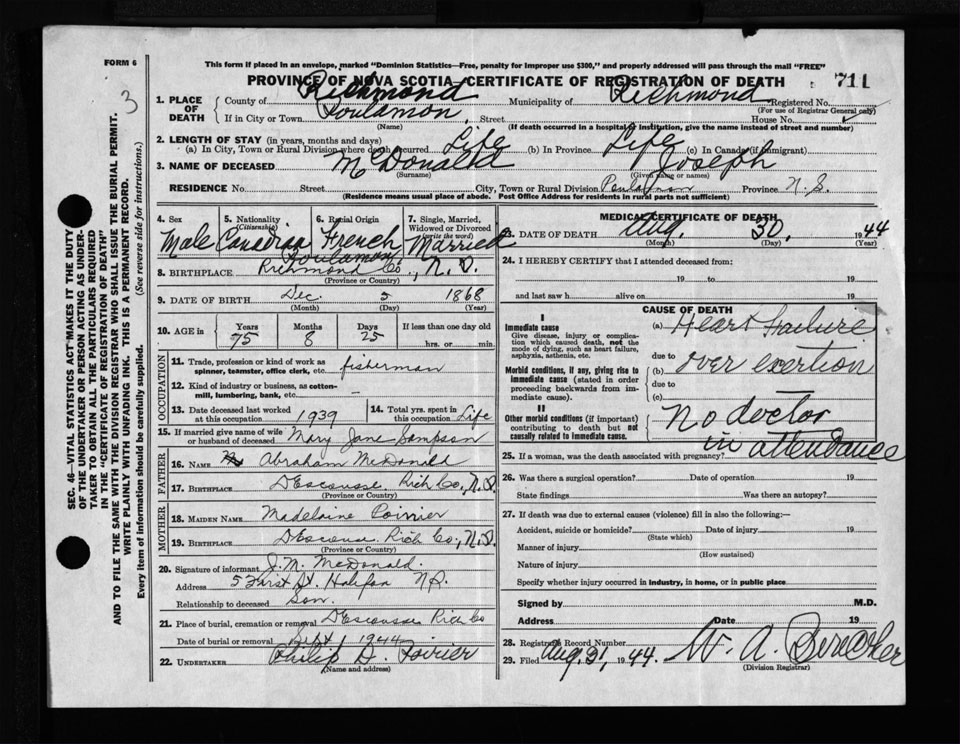 FORM 6
This form if placed in an envelope, marked "Dominion Statistics—Free, penalty for improper use $300," and properly addressed will pass through the mail "FREE"
PROVINCE OF NOVA SCOTIA—CERTIFICATE OF REGISTRATION OF DEATH
711
3
SEC. 46—VITAL STATISTICS ACT MAKES IT THE DUTY
OF THE UNDERTAKER OR PERSON ACTING AS UNDER-
TAKER TO OBTAIN ALL THE PARTICULARS REQUIRED
IN THE "CERTIFICATE OF REGISTRATION OF DEATH"
AND TO FILE THE SAME WITH THE DIVISION REGISTRAR WHO SHALL ISSUE THE BURIAL PERMIT.
WRITE PLAINLY WITH UNFADING INK. THIS IS A PERMANENT RECORD.
Every item of information should be carefully supplied. (See reverse side for instructions.)
1. PLACE OF DEATH County of Richmond Municipality of Richmond Registered No.
(For use of Registrar General only)
If in City or Town Poulamon, Street House No.
(Name) (If death occurred in a hospital or institution, give the name instead of street and number)
2. LENGTH OF STAY (in years, months and days)
(a) In City, Town or Rural Division where death occurred Life (b) In Province Life (c) In Canada (if immigrant)
3. NAME OF DECEASED McDonald Joseph
(Surname) (Given name or names)
RESIDENCE No. Street City, Town or Rural Division Province N.S.
(Residence means usual place of abode. Post Office Address for residents in rural parts not sufficient)
4. Sex Male
5. Nationality (Citizenship) Canadian
6. Racial Origin French
7. Single, Married, Widowed or Divorced (write the word) Married
8. BIRTHPLACE Poulamon Richmond Co., N.S.
(Province or Country)
9. DATE OF BIRTH Dec. 5 1868
(Month) (Day) (Year)
10. AGE in Years 75 Months 8 Days 25 If less than one day old hrs. or min.
OCCUPATION
11. Trade, profession or kind of work as spinner, teamster, office clerk, etc. fisherman
12. Kind of industry or business, as cotton-mill, lumbering, bank, etc. —
13. Date deceased last worked at this occupation 1939
14. Total yrs. spent in this occupation Life
15. If married give name of wife or husband of deceased Mary Jane Sampson
FATHER
16. NAME Abraham McDonald
17. BIRTHPLACE D'Escousse Rich Co., N.S.
(Province or Country)
MOTHER
18. MAIDEN NAME Madelaine Poirier
19. BIRTHPLACE D'Escousse Rich Co., N.S.
(Province or Country)
20. Signature of informant J.M. McDonald.
Address 5 St. Halifax N.S.
Relationship to deceased Son.
21. Place of burial, cremation or removal D'Escousse Rich Co
Date of burial or removal Sept 1 1944
22. UNDERTAKER Philip D. Poirier
(Name and address)
MEDICAL CERTIFICATE OF DEATH
23. DATE OF DEATH Aug. 30, 1944
(Month) (Day) (Year)
24. I HEREBY CERTIFY that I attended deceased from:
19 to 19
and last saw h alive on 19
CAUSE OF DEATH
I
Immediate cause
Give disease, injury or complication which caused death, not the mode of dying, such as heart failure, asphyxia, asthenia, etc.
(a) Heart Failure
due to
Morbid conditions, if any, giving rise to immediate cause (stated in order proceeding backwards from immediate cause).
(b) over exertion
due to
(c) —
II
Other morbid conditions (if important) contributing to death but not causally related to immediate cause.
No doctor
in attendance
25. If a woman, was the death associated with pregnancy?
26. Was there a surgical operation? Date of operation 19
State findings Was there an autopsy?
27. If death was due to external causes (violence) fill in also the following:—
Accident, suicide or homicide? Date of injury 19
(State which)
Manner of injury
(How sustained)
Nature of injury
Specify whether injury occurred in industry, in home, or in public place
Signed by M.D.
Address Date 19
28. Registrar's Record Number
29. Filed Aug. 31, 1944. W. A.
(Division Registrar)